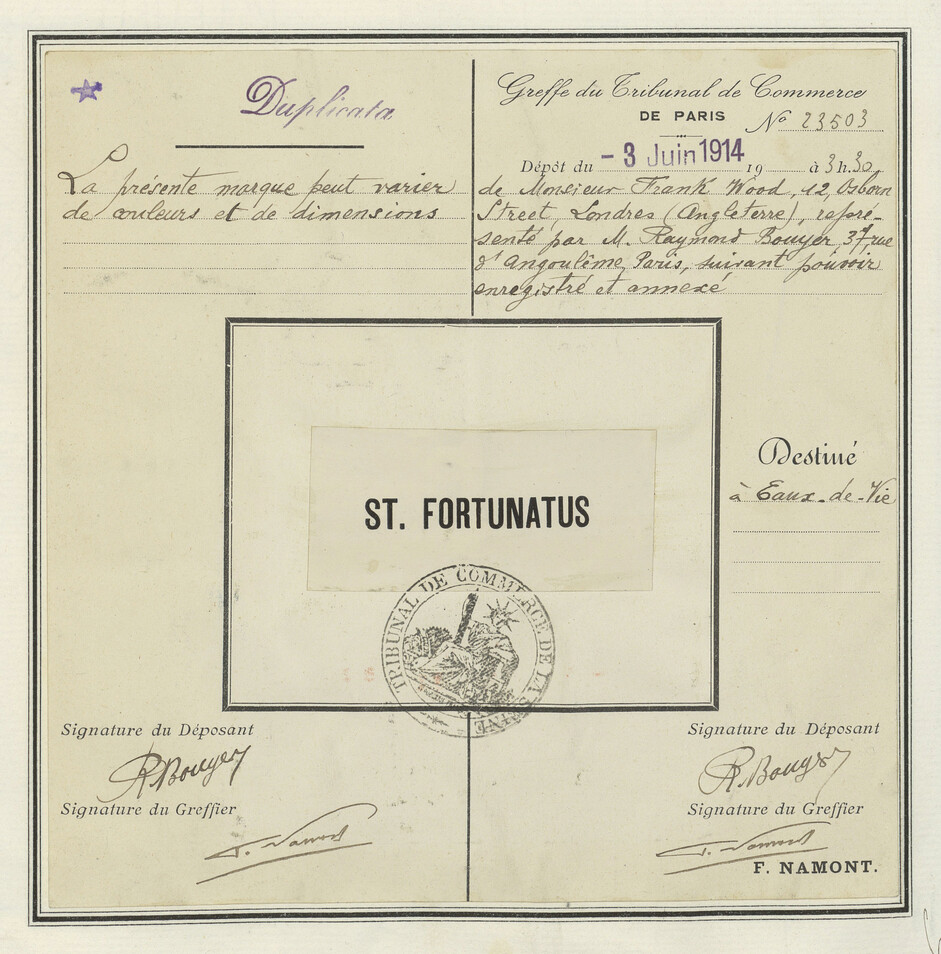 Duplicata
La présente marque peut varier
de couleurs et de dimensions
Greffe du Tribunal de Commerce
DE PARIS
No 23503
Dépôt du - 3 Juin 1914 19 à 3h.30
de Monsieur Frank Wood, 12, Osborn
Street, Londres (Angleterre), repré-
senté par M. Raymond Bouyer, 37, rue
d'Angoulême, Paris, suivant pouvoir
enregistré et annexé
ST. FORTUNATUS
Destiné
à Eaux-de-Vie
TRIBUNAL DE COMMERCE DE LA SEINE
Signature du Déposant
R. Bouyer
Signature du Greffier
F. Namont
Signature du Déposant
R. Bouyer
Signature du Greffier
F. Namont
F. NAMONT.